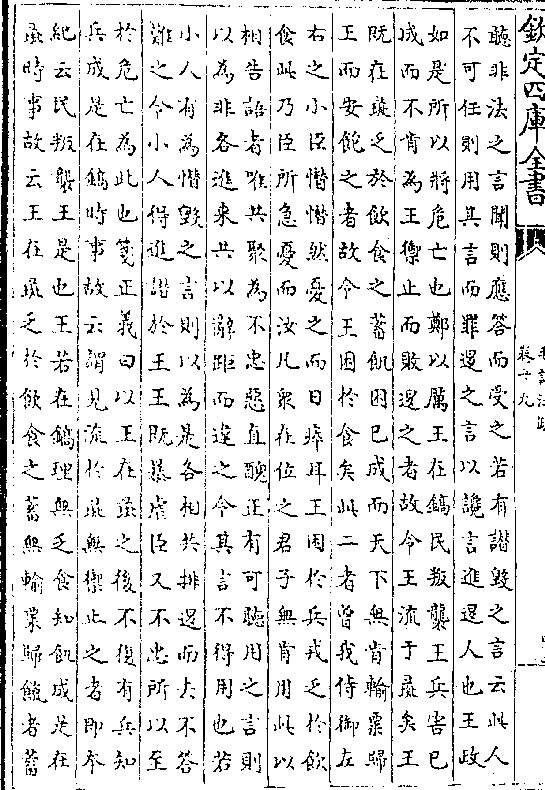 欽定四庫全書
卷十九
聽非法之言聞則應答而受之若有譖毀之言云此人
不可任則用其言而罪退之言以讒言進退人也王政
如是所以將危亡也鄭以厲王在鎬民叛襲王兵害已
成而不肯為王禦止而敗退之者故令王流于彘矣王
既在彘乏於飲食之蓄飢困已成而天下無肯輸粟歸
王而安飽之者故令王困於食矣此二者曾我侍御左
右之小臣憯憯然憂之而日瘁耳王困於兵戎乏於飲
食此乃臣所急憂而汝凡衆在位之君子無肯用此以
相告語者唯共聚為不忠惡直醜正有可聽用之言則
以為非各進來共以辭距而違之令其言不得用也若
小人有為譖毀之言則以為是各相共排退而去不答
難之令小人得進譖於王王既暴虐臣又不忠所以至
於危亡為此也箋正義曰以王在彘之後不復有兵知
兵成是在鎬時事故云謂見流於彘無禦止之者即本
紀云民叛襲王是也王若在鎬理無乏食知飢成是在
彘時事故云王在彘乏於飲食之蓄無輸粟歸餼者蓄